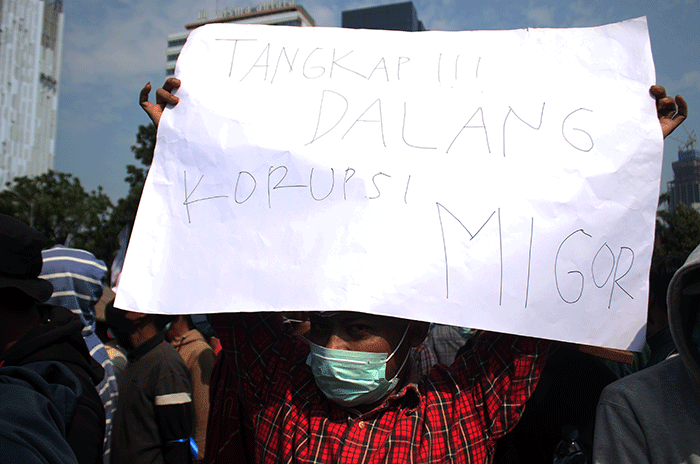 TANGKAP !!!
DALANG
KORUPSI
MIGOR